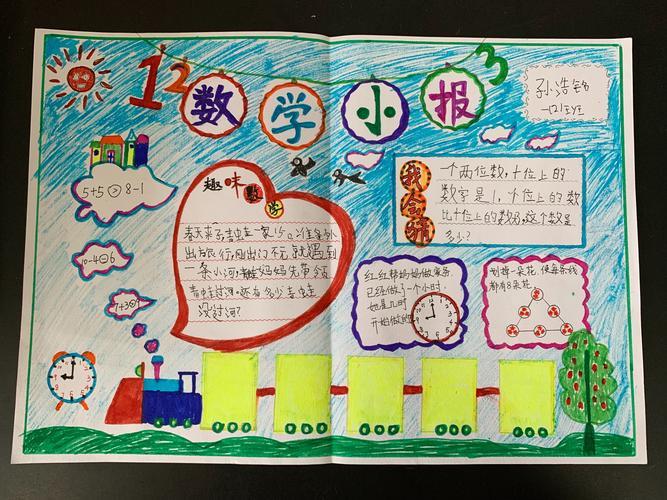 1 2 数学小报 3
孙浩
一(2)班
5+5>8-1
10-4=6
7+3
趣味数学
春天来了,青蛙一家
出去旅行,刚出门不远就遇到
一条小河,妈妈先带领
青蛙过河,还有多少青蛙
没过河?
我会猜
一个两位数,十位上的
数字是1,个位上的数
比十位上的数多,这个数是
多少?
红红帮妈妈做家务,
已经做了一个小时,
她是几时
开始做的
划掉一朵花,使每条线
都有8朵花